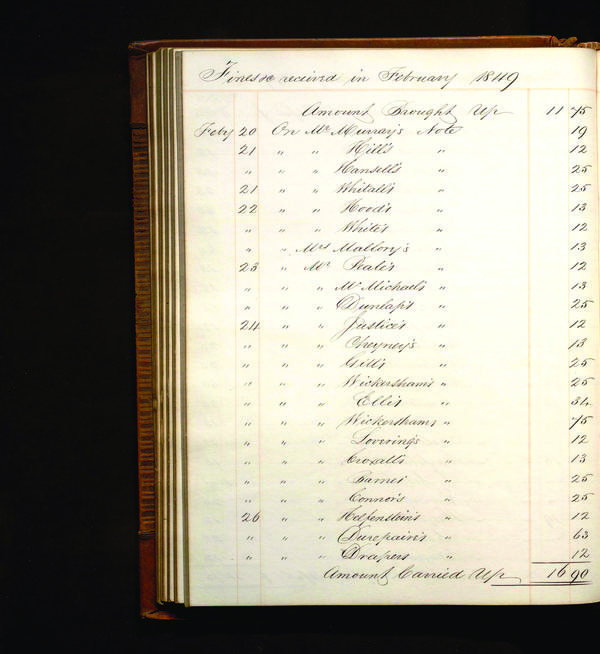 Fines &c received in February 1849
Amount Brought Up 11 75
Feby 20 On Mr Murray's Note 19
21 " " Hill's " 12
" " " Hansell's " 25
21 " " Whitall's " 25
22 " " Hood's " 13
" " " White's " 12
" " Mrs Mallory's " 13
23 " Mr Peale's " 12
" " " Mc Michael's " 13
" " " Dunlap's " 25
24 " " Justice's " 12
" " " Cheyney's " 13
" " " Gill's " 25
" " " Wickersham's " 25
" " " Ellis " 54
" " " Wickersham's " 75
" " " Lovering's " 12
" " " Croxall's " 13
" " " Barnes " 25
" " " Connor's " 25
26 " " Helfenstein's " 12
" " " " 63
" " " Drapers " 12
Amount Carried Up 16 90